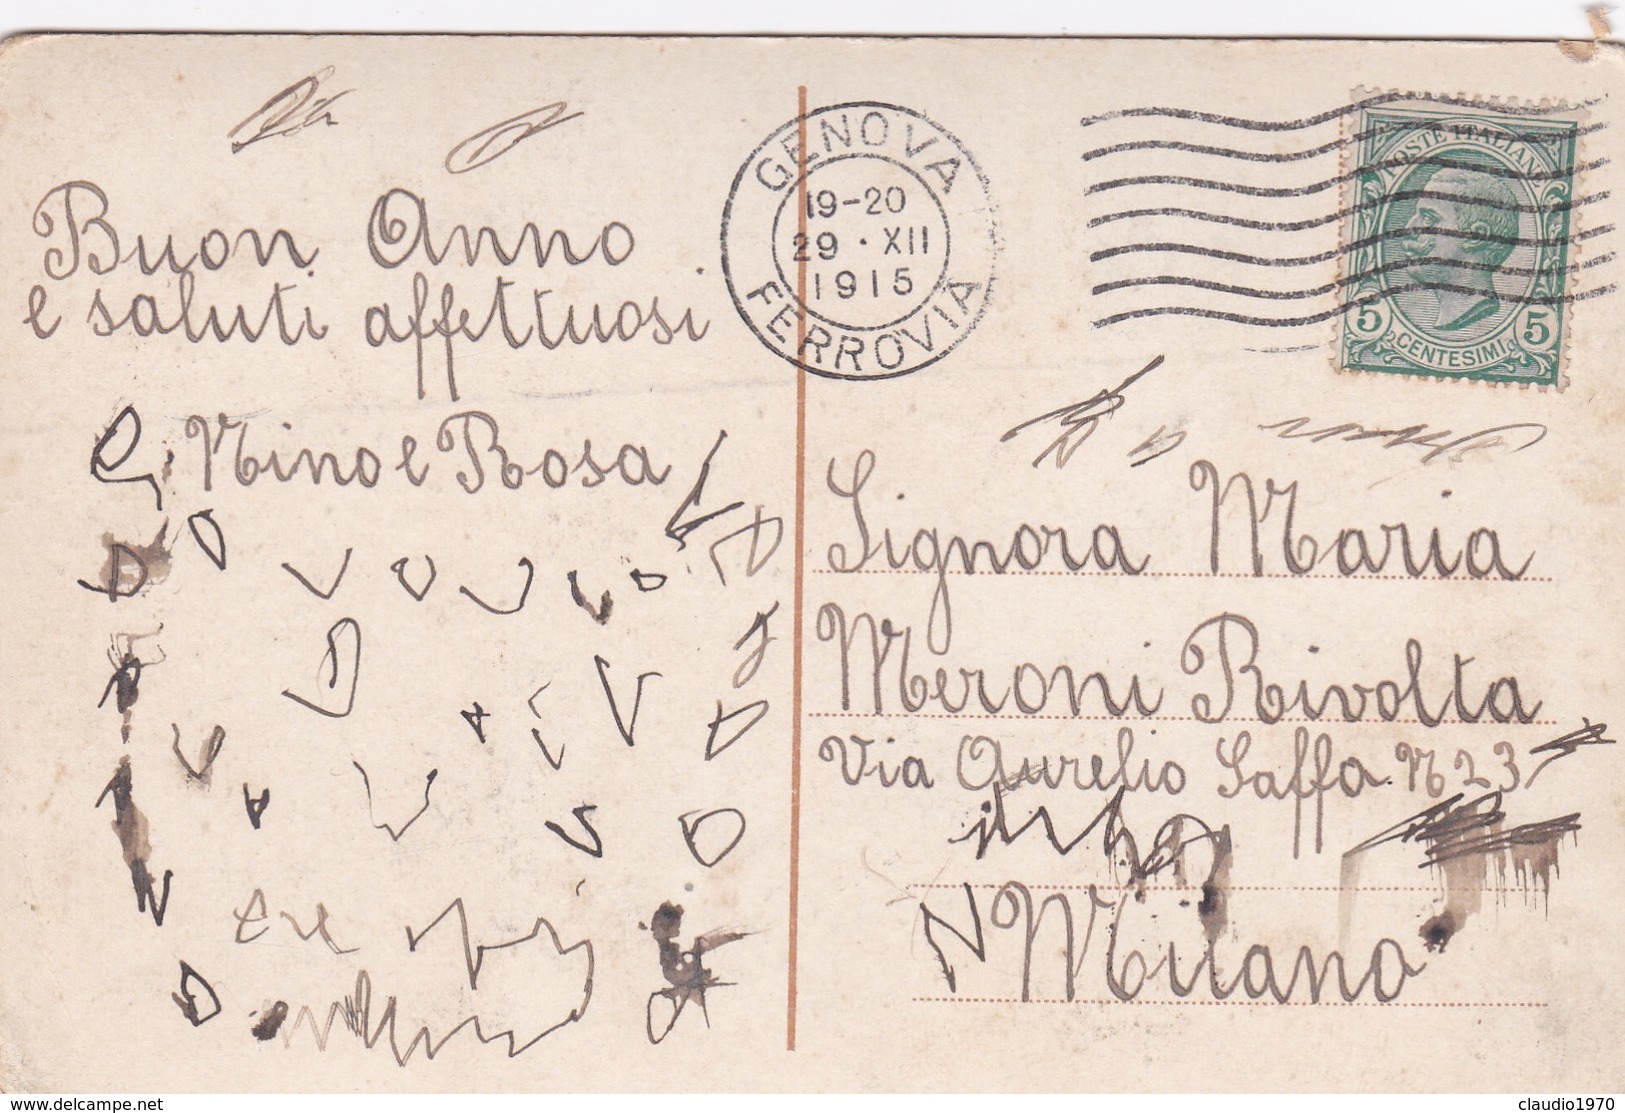 Buon Anno
e saluti affettuosi
Nino e Rosa
GENOVA
19-20
29 · XII
1915
FERROVIA
POSTE ITALIANE
5 CENTESIMI 5
Signora Maria
Meroni Rivolta
Via Aurelio Saffa N 23
Milano
www.delcampe.net
claudio1970